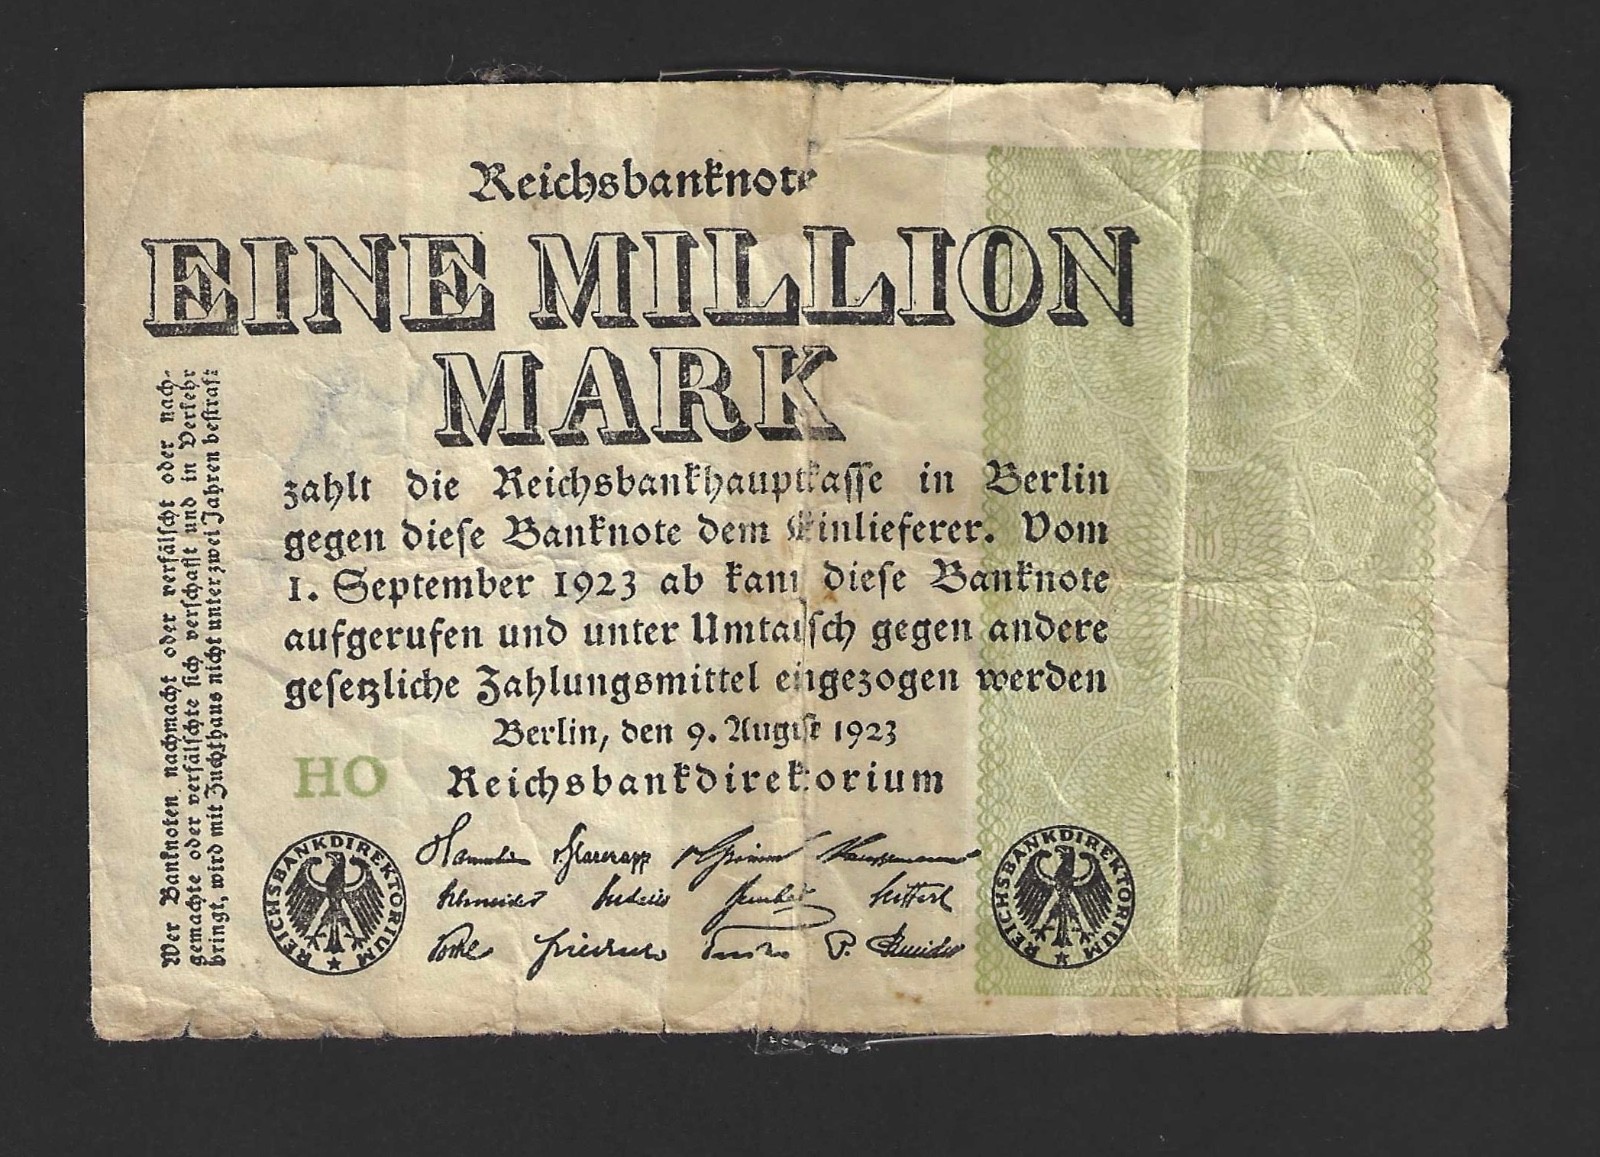 Reichsbanknote
EINE MILLION
MARK
zahlt die Reichsbankhauptkasse in Berlin
gegen diese Banknote dem Einlieferer. Vom
1. September 1923 ab kann diese Banknote
aufgerufen und unter Umtausch gegen andere
gesetzliche Zahlungsmittel eingezogen werden
Berlin, den 9. August 1923
HO
Reichsbankdirektorium
REICHSBANKDIREKTORIUM
REICHSBANKDIREKTORIUM
v. Glasenapp v. Grimm
Schneider
P. Schneider
Wer Banknoten nachmacht oder verfälscht oder nach-
gemachte oder verfälschte sich verschafft und in Verkehr
bringt, wird mit Zuchthaus nicht unter zwei Jahren bestraft